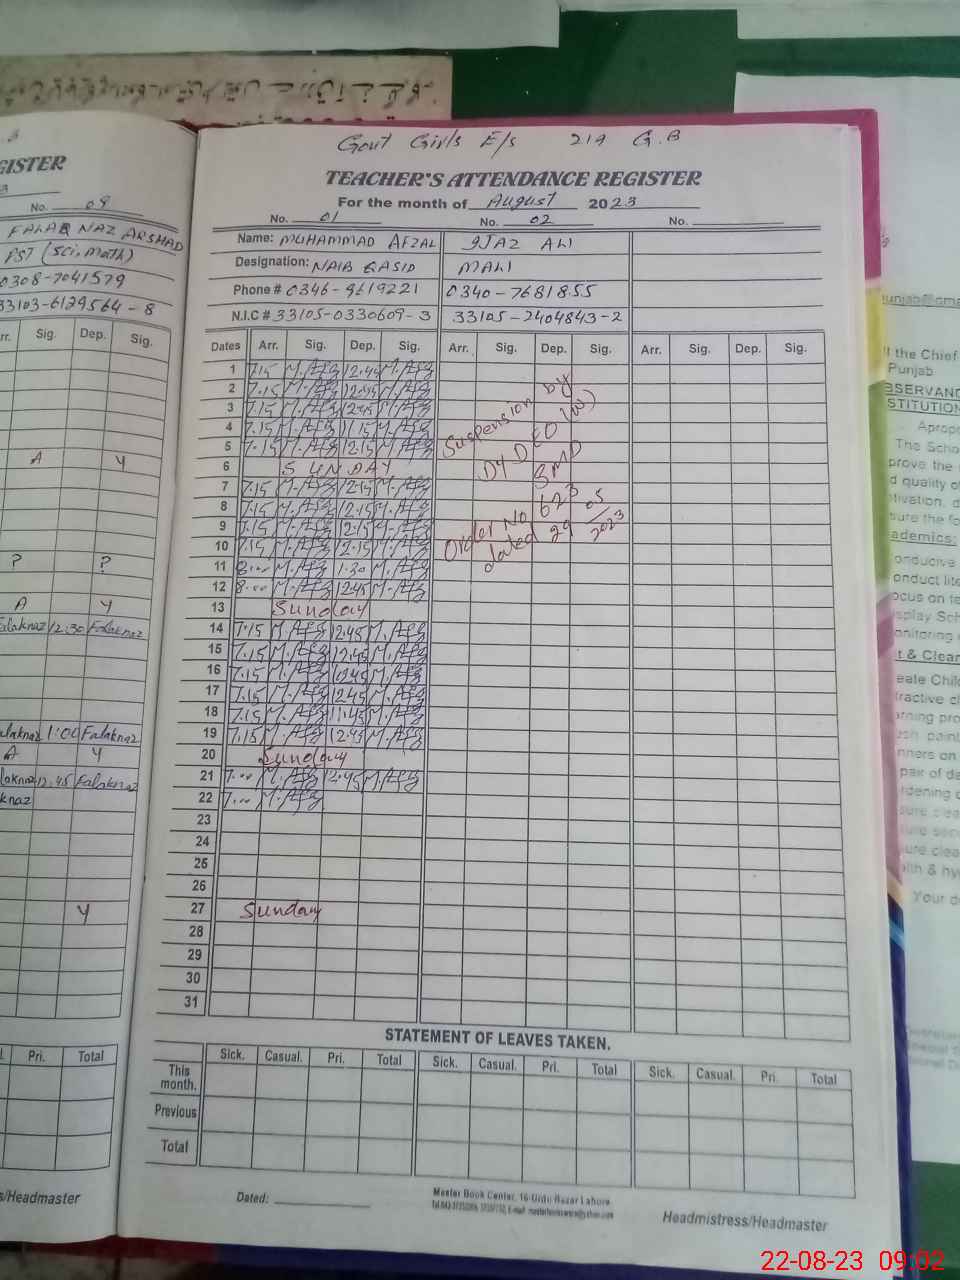 Govt Girls E/s 219 G.B
TEACHER'S ATTENDANCE REGISTER
For the month of August 2023
No. 01 No. 02 No.
Name: MUHAMMAD AFZAL IJAZ ALI
Designation: NAIB QASID MALI
Phone # 0346-9619221 0340-7681855
N.I.C # 33105-0330609-3 33105-2404843-2
Dates Arr. Sig. Dep. Sig. Arr. Sig. Dep. Sig. Arr. Sig. Dep. Sig.
1 7.15 M.Afz 12.45 M.Afz
2 7.15 M.Afz 12.45 M.Afz
3 7.15 M.Afz 12.45 M.Afz
4 7.15 M.Afz 11.15 M.Afz
5 7.15 M.Afz 12.15 M.Afz
6 SUNDAY
7 7.15 M.Afz 12.15 M.Afz
8 7.15 M.Afz 12.15 M.Afz
9 7.15 M.Afz 12.15 M.Afz
10 7.15 M.Afz 12.15 M.Afz
11 8... M.Afz 1.30 M.Afz
12 8... M.Afz 12.45 M.Afz
13 Sunday
14 7.15 M.Afz 12.45 M.Afz
15 7.15 M.Afz 12.45 M.Afz
16 7.15 M.Afz 12.45 M.Afz
17 7.15 M.Afz 12.45 M.Afz
18 7.15 M.Afz 11.45 M.Afz
19 7.15 M.Afz 12.45 M.Afz
20 Sunday
21 7... M.Afz 12.45 M.Afz
22 7... M.Afz
23
24
25
26
27 Sunday
28
29
30
31
Suspension by
Dy DEO (W)
SMD
Order No 623
dated 29 05
2023
STATEMENT OF LEAVES TAKEN.
Sick. Casual. Pri. Total Sick. Casual. Pri. Total Sick. Casual. Pri. Total
This month.
Previous
Total
Dated:
Master Book Center, 16-Urdu Bazar Lahore
Headmistress/Headmaster
GISTER
No. 08
FALAQ NAZ ARSHAD
PST (Sci, math)
0308-7041579
33103-6129564-8
Arr. Sig. Dep. Sig.
A Y
? ?
A Y
Falaknaz 12.30 Falaknaz
alaknaz 1:00 Falaknaz
A Y
laknaz 12.45 Falaknaz
knaz
Y
Pri. Total
s/Headmaster
unjab@gma
ll the Chief
Punjab
BSERVANC
STITUTION
Aprop
The Scho
prove the
d quality of
tivation, d
sure the fo
ademics:
onducive
onduct lite
ocus on te
splay Sch
onitoring
t & Clean
eate Child
ttractive cl
arning pro
esh paint
nners on
pair of da
rdening o
sure clea
sure clea
alth & hy
Your d
22-08-23 09:02